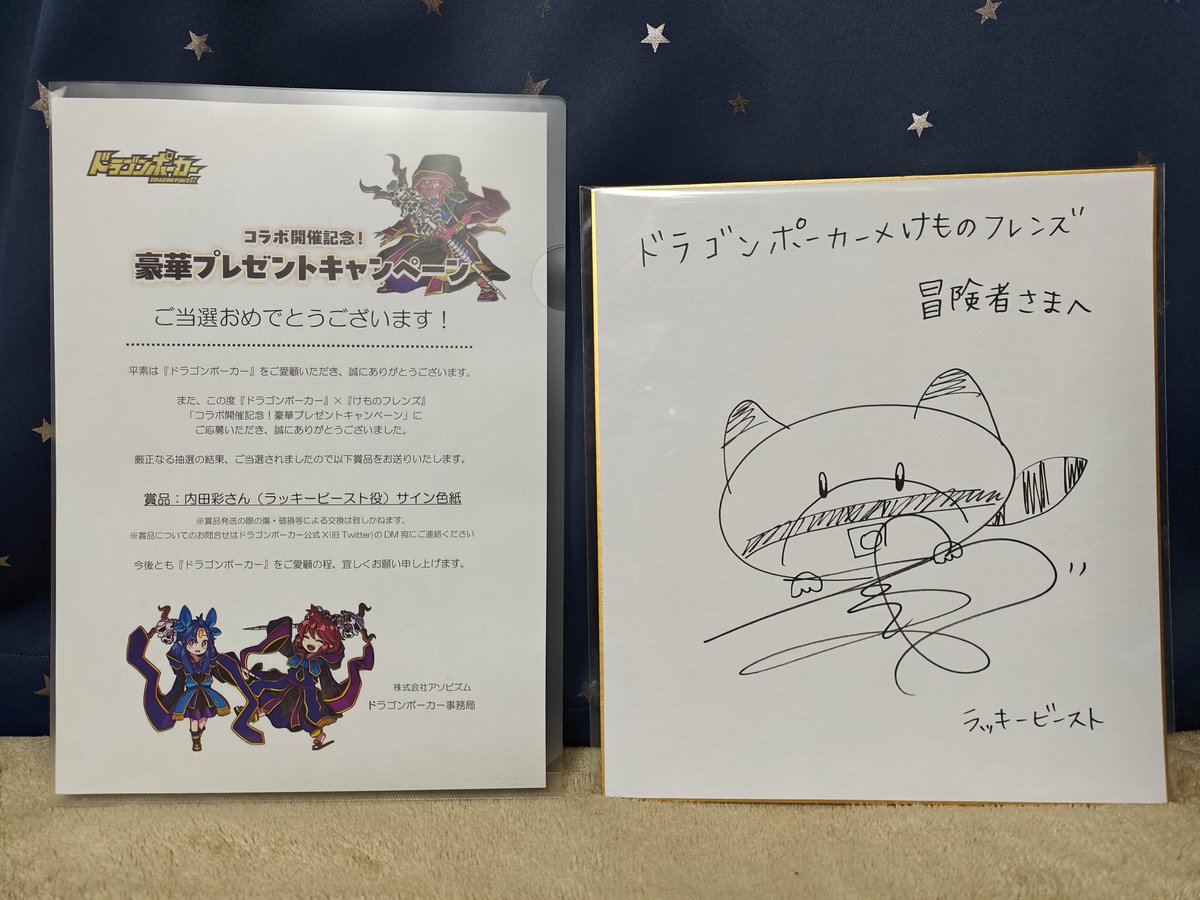 ドラゴンポーカー
DRAGON POKER
コラボ開催記念！
豪華プレゼントキャンペーン
ご当選おめでとうございます！
平素は『ドラゴンポーカー』をご愛顧いただき、誠にありがとうございます。
また、この度『ドラゴンポーカー』×『けものフレンズ』
「コラボ開催記念！豪華プレゼントキャンペーン」に
ご応募いただき、誠にありがとうございました。
厳正なる抽選の結果、ご当選されましたので以下賞品をお送りいたします。
賞品：内田彩さん（ラッキービースト役）サイン色紙
※賞品発送の際の傷・破損等による交換は致しかねます。
※賞品についてのお問合せはドラゴンポーカー公式X(旧 Twitter)のDM宛にご連絡ください
今後とも『ドラゴンポーカー』をご愛顧の程、宜しくお願い申し上げます。
株式会社アソビズム
ドラゴンポーカー事務局
ドラゴンポーカー×けものフレンズ
冒険者さまへ
ラッキービースト